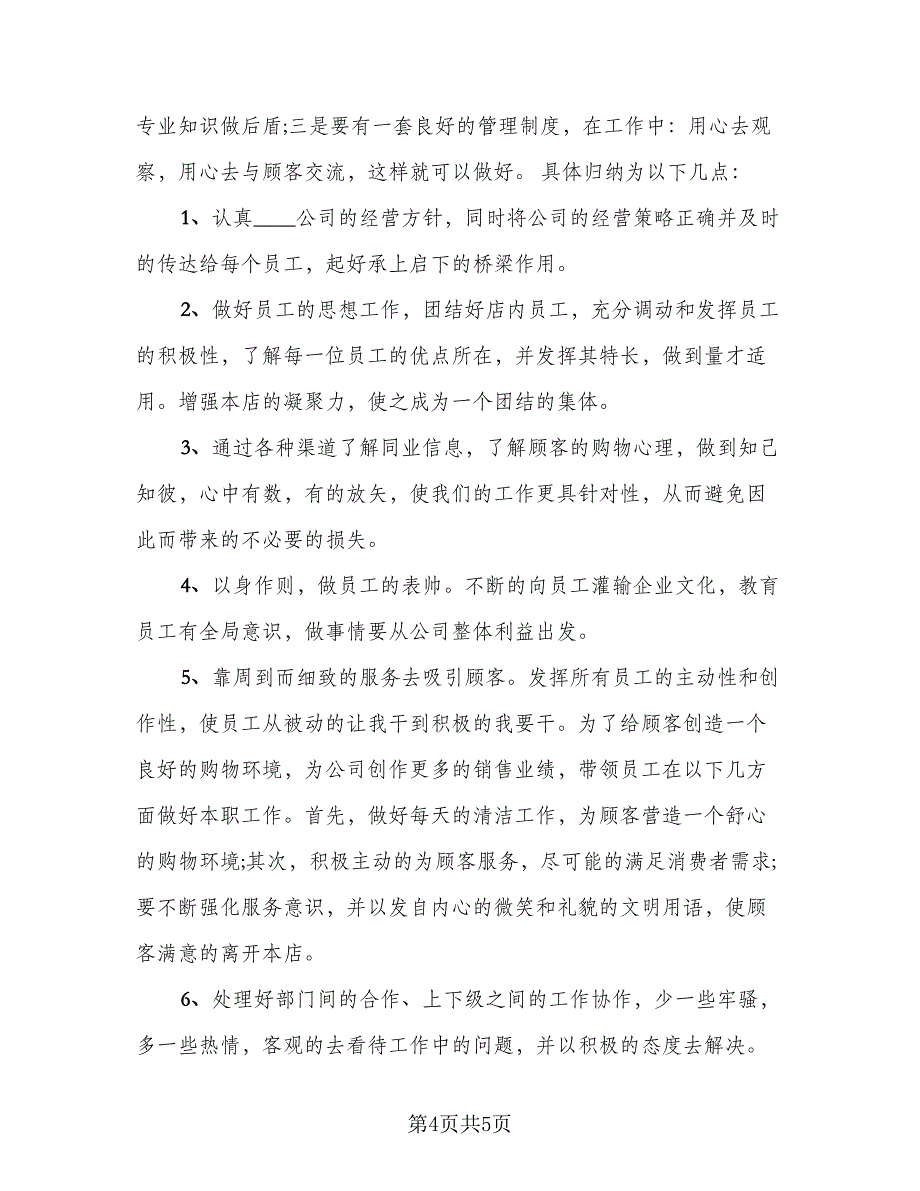 专业知识做后盾;三是要有一套良好的管理制度，在工作中：用心去观
察，用心去与顾客交流，这样就可以做好。 具体归纳为以下几点：
1、认真____公司的经营方针，同时将公司的经营策略正确并及时
的传达给每个员工，起好承上启下的桥梁作用。
2、做好员工的思想工作，团结好店内员工，充分调动和发挥员工
的积极性，了解每一位员工的优点所在，并发挥其特长，做到量才适
用。增强本店的凝聚力，使之成为一个团结的集体。
3、通过各种渠道了解同业信息，了解顾客的购物心理，做到知己
知彼，心中有数，有的放矢，使我们的工作更具针对性，从而避免因
此而带来的不必要的损失。
4、以身作则，做员工的表帅。不断的向员工灌输企业文化，教育
员工有全局意识，做事情要从公司整体利益出发。
5、靠周到而细致的服务去吸引顾客。发挥所有员工的主动性和创
作性，使员工从被动的让我干到积极的我要干。为了给顾客创造一个
良好的购物环境，为公司创作更多的销售业绩，带领员工在以下几方
面做好本职工作。首先，做好每天的清洁工作，为顾客营造一个舒心
的购物环境;其次，积极主动的为顾客服务，尽可能的满足消费者需求;
要不断强化服务意识，并以发自内心的微笑和礼貌的文明用语，使顾
客满意的离开本店。
6、处理好部门间的合作、上下级之间的工作协作，少一些牢骚，
多一些热情，客观的去看待工作中的问题，并以积极的态度去解决。
第4页共5页